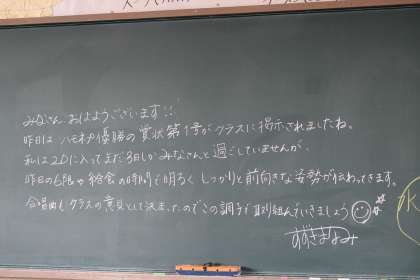 みなさんおはようございます!!
昨日はハモネプ優勝の賞状第1号がクラスに掲示されましたね。
私は2Dに入ってまだ3日しかみなさんと過ごしていませんが、
昨日の6限や給食の時間で明るくしっかりと前向きな姿勢が伝わってきます。
合唱曲もクラスの意見として決まったのでこの調子で取り組んでいきましょう